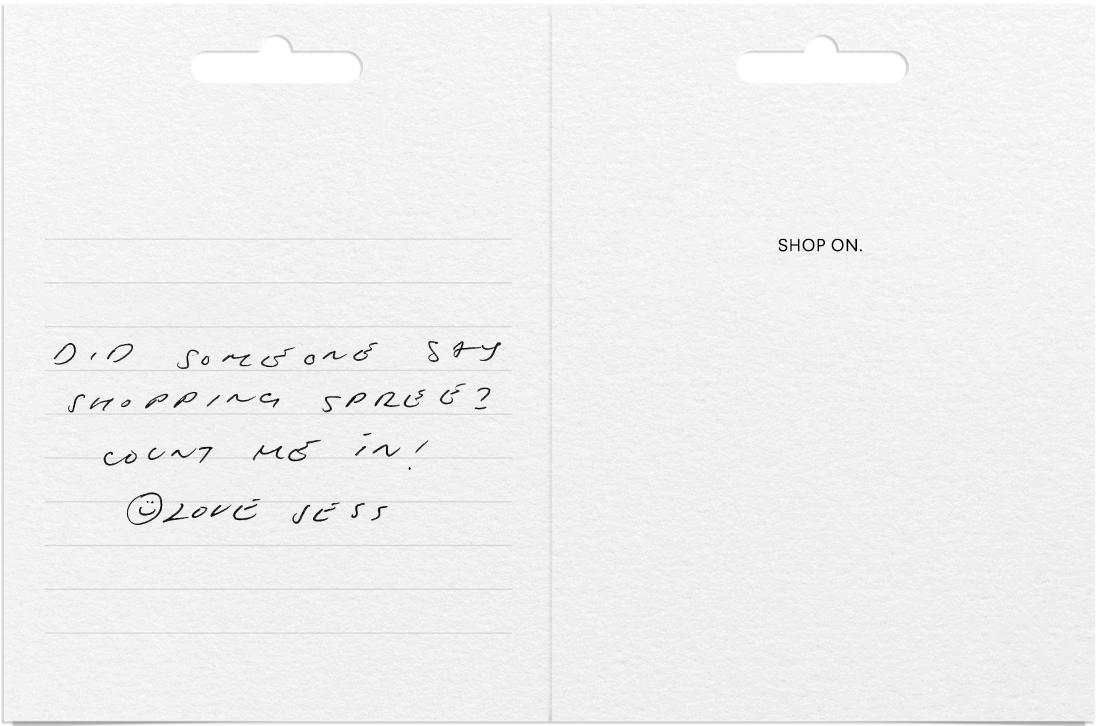 DID SOMEONE SAY
SHOPPING SPREE?
COUNT ME IN!
LOVE JESS
SHOP ON.